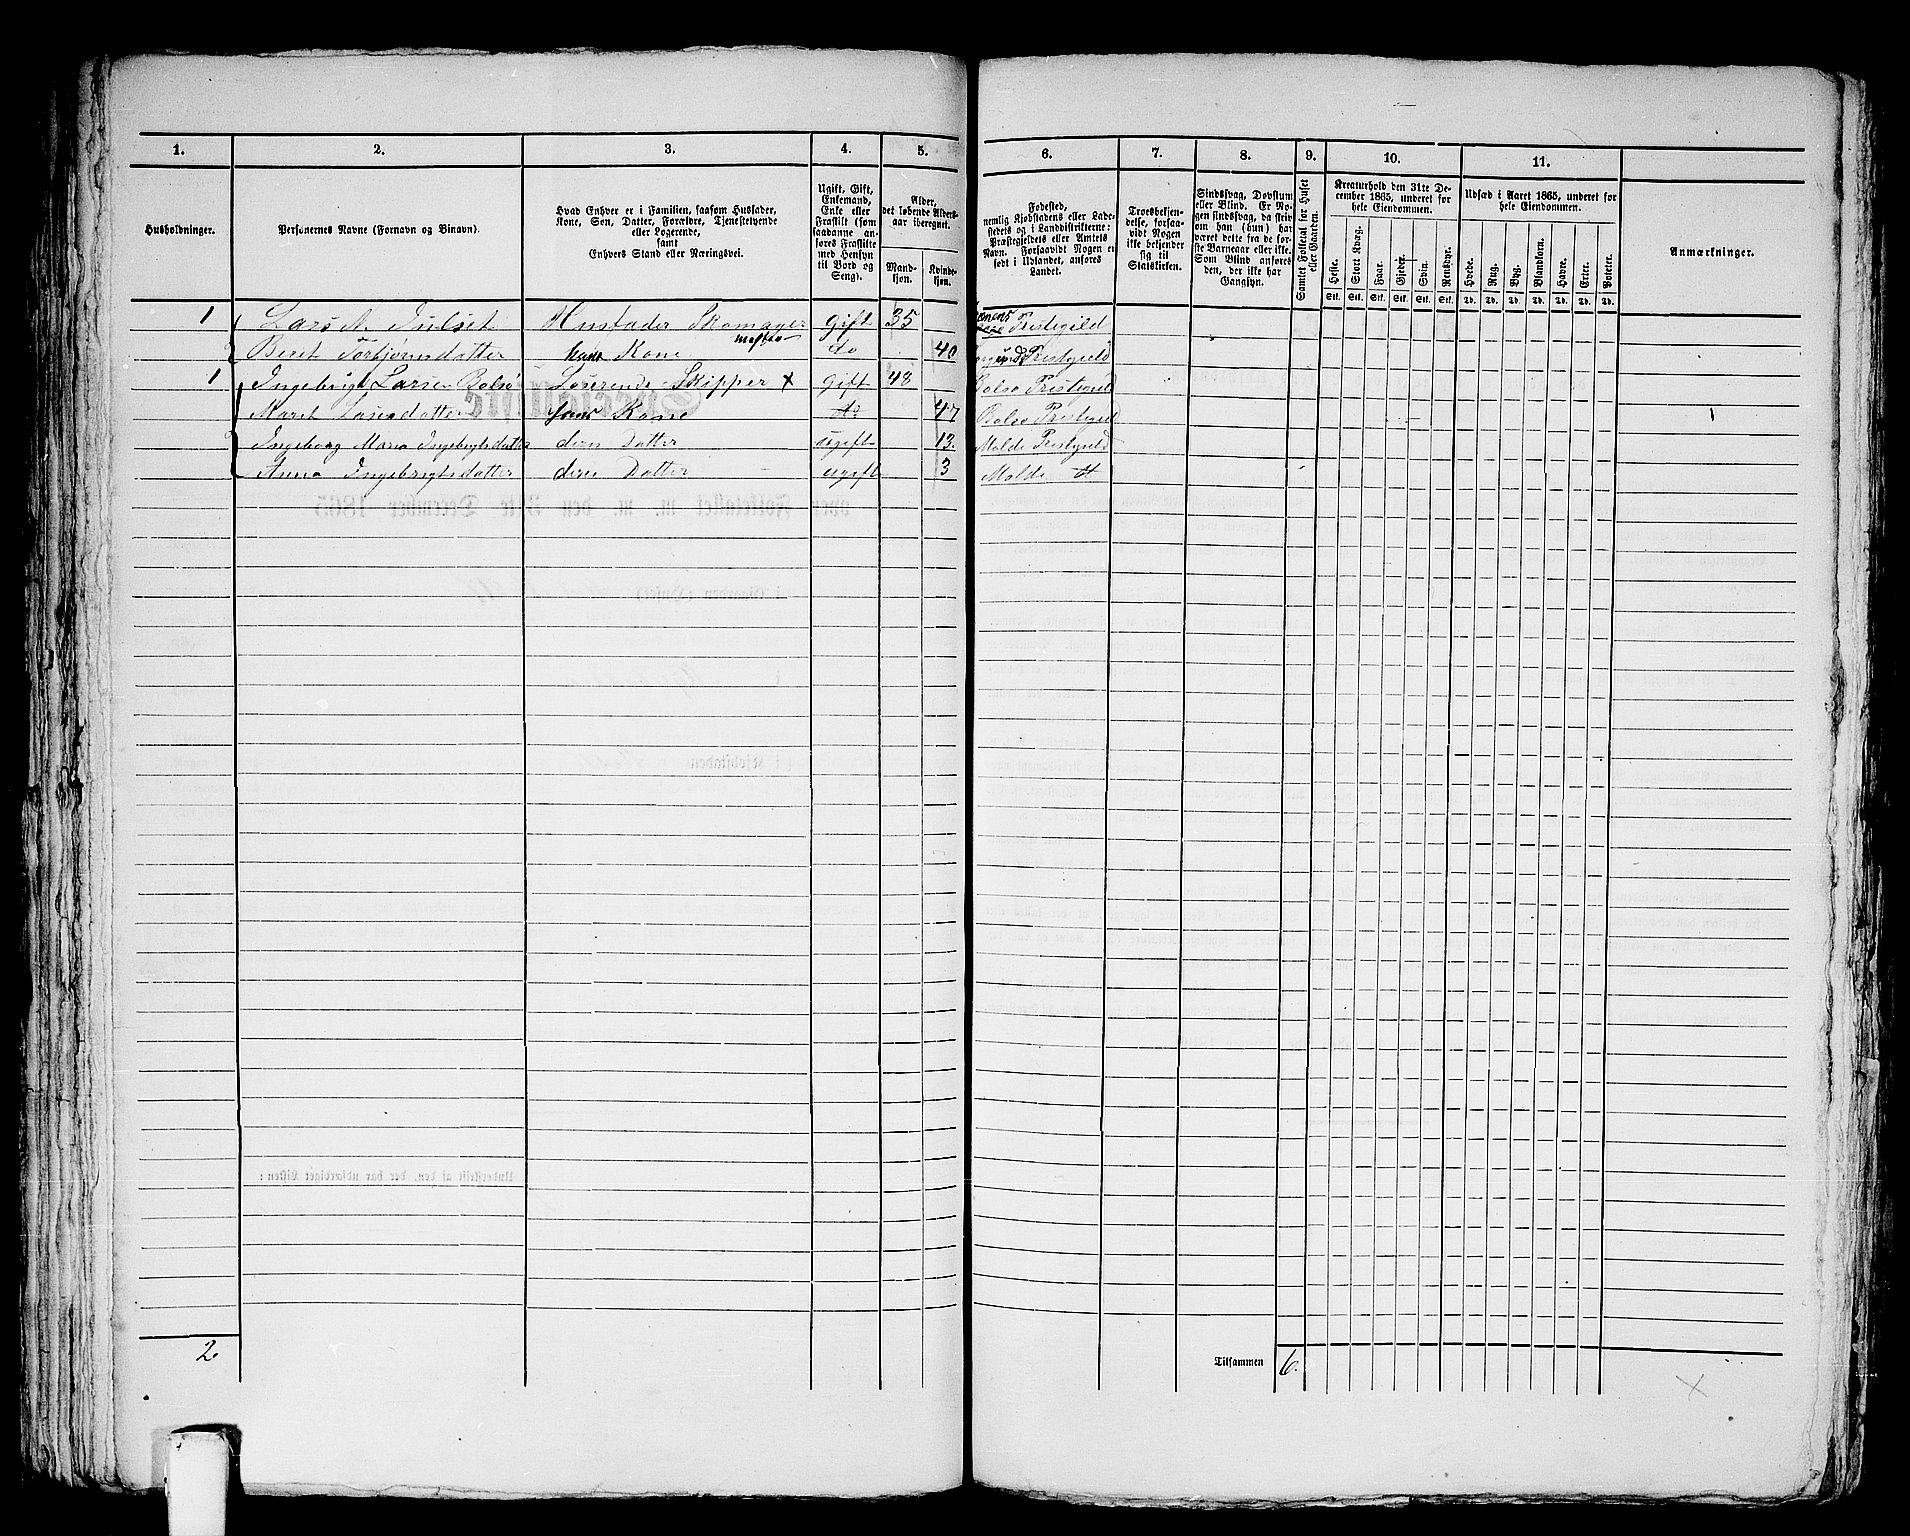 1. 2. 3. 4. 5. 6. 7. 8. 9. 10. 11.
Husholdninger.
Personernes Navne (Fornavn og Binavn).
Hvad Enhver er i Familien, saasom Husfader,
Kone, Søn, Datter, Forældre, Tjenestetyende
eller Logerende,
samt
Enhvers Stand eller Næringsvei.
Ugift, Gift,
Enkemand,
Enke eller
Fraskilt (som
saadanne an-
føres Fraskilte
med Hensyn
til Bord og
Seng).
Alder,
det løbende Alders-
aar iberegnet.
Mand-
kjøn.
Kvinde-
kjøn.
Fødested,
nemlig Kjøbstadens eller Lade-
stedets og i Landdistrikterne:
Præstegjeldets eller Amtets
Navn. Forsaavidt Nogen er
født i Udlandet, anføres
Landet.
Troesbekjen-
delse, forsaa-
vidt Nogen
ikke bekjender
sig til
Statskirken.
Sindssvag, Døvstum
eller Blind. Er No-
gen sindssvag, da skriv
om han (hun) har
været dette fra de før-
ste Barneaar eller ikke.
Som Blind anføres
den, der ikke har
Gangsyn.
Samlet Folketal for Huset
eller Gaarden.
Kreaturhold den 31te De-
cember 1865, underet for
hele Eiendommen.
Heste. Stort Kvæg. Faar. Gjeder. Svin. Rensdyr.
Stk. Stk. Stk. Stk. Stk. Stk.
Udsæd i Aaret 1865, underet for
hele Eiendommen.
Hvede. Rug. Byg. Blandkorn. Havre. Erter. Poteter.
Td. Td. Td. Td. Td. Td. Td.
Anmærkninger.
1 Lars A. Julset Husfader Skomager mester gift 35 Prestegild
2 Beret Torbjørnsdatter hans Kone do 40 Prestegield
1 Ingebrigt Larsen Bolsø Loserende Skipper x gift 48 Bolsø Prestegield
Maret Larsdatter hans Kone do 47 Bolsø Prestegield 1
2 Ingeborg Maria Ingebrigtsdatter deres Datter ugift 13 Molde Prestegield
Anna Ingebrigtsdatter deres Datter ugift 3 Molde
2
Tilsammen 6.